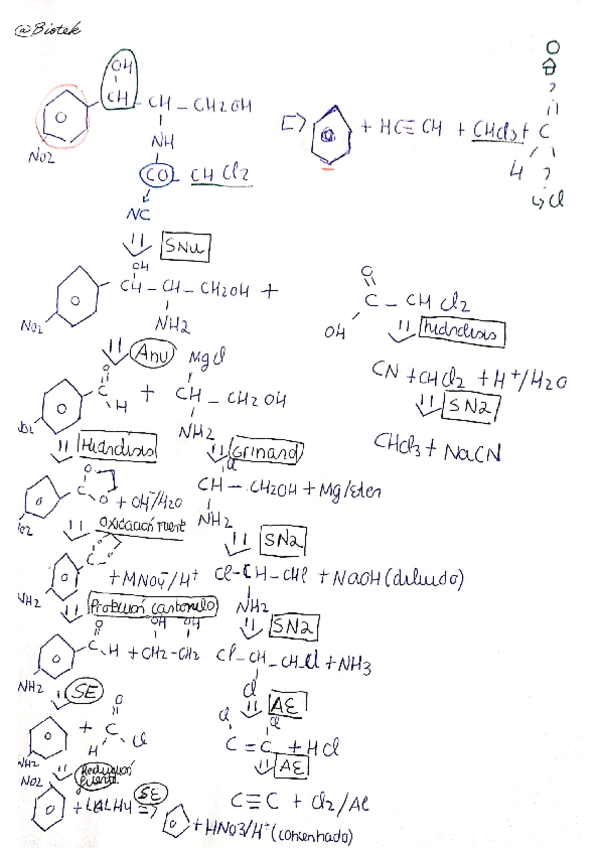 @Biotek
OH
CH – CH – CH2OH
NO2
NH
CO – CHCl2
NC
+ HC≡CH + CHCl3 +
O
C
4
Cl
SNu
OH
CH – CH – CH2OH +
NO2
NH2
O
C – CHCl2
OH
hidrólisis
CN + CHCl2 + H+/H2O
SN2
CHCl3 + NaCN
Anu
MgCl
O
C
H
+ CH – CH2OH
NO2
NH2
Hidrólisis
Grinard
Cl
CH – CH2OH + Mg/eter
NH2
O
C
O
+ OH-/H2O
NO2
Oxidación fuerte
SN2
+ MNO4-/H+
Cl-CH-CHCl + NaOH (diluido)
NH2
NH2
Protección carbonilo
SN2
O
C-H
OH OH
+ CH2-CH2
NH2
Cl-CH-CHCl + NH3
Cl
SE
AE
+
O
C
H
Cl
NH2
Cl
Cl
C=C + HCl
Reducción fuerte
AE
NO2
+ LiAlH4
SE
+ HNO3/H+ (concentrado)
C≡C + Cl2/Al